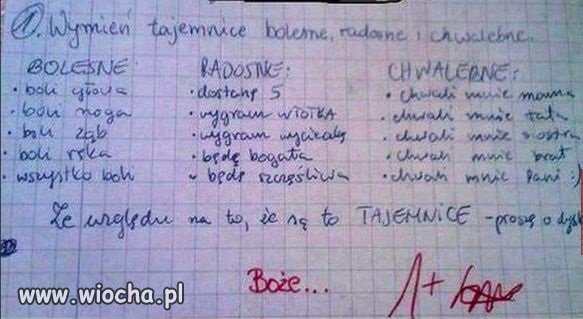 1. Wymień tajemnice bolesne, radosne i chwalebne.
BOLESNE: RADOSNE: CHWALEBNE:
• boli głowa • dostanę 5 • chwali mnie mama
• boli noga • wygram totka • chwali mnie tata
• boli ząb • wygram wycieczkę • chwali mnie siostra
• boli ręka • będę bogata • chwali mnie brat
• wszystko boli • będę szczęśliwa • chwali mnie Pani :)
Ze względu na to, że są to TAJEMNICE - proszę o
Boże... 1+
www.wiocha.pl